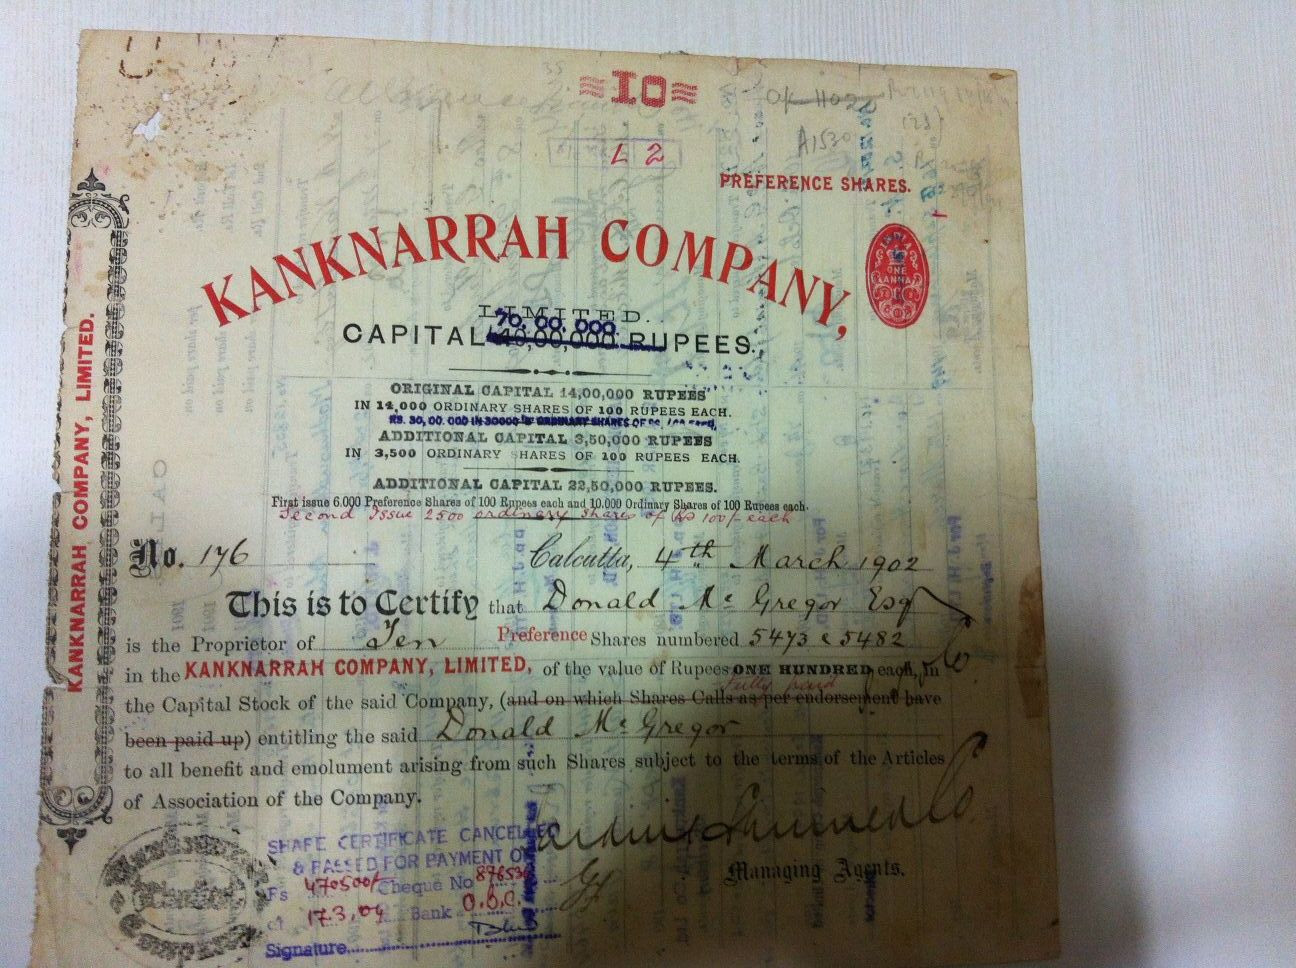 10
L 2
OK 1102
A1530
PREFERENCE SHARES.
KANKNARRAH COMPANY,
LIMITED.
70,00,000
CAPITAL 40,00,000 RUPEES.
ONE
ANNA
ORIGINAL CAPITAL 14,00,000 RUPEES
IN 14,000 ORDINARY SHARES OF 100 RUPEES EACH.
RS. 30,00,000 IN 30000 ORDINARY SHARES OF RS. 100 EACH,
ADDITIONAL CAPITAL 3,50,000 RUPEES
IN 3,500 ORDINARY SHARES OF 100 RUPEES EACH.
ADDITIONAL CAPITAL 22,50,000 RUPEES.
First issue 6.000 Preference Shares of 100 Rupees each and 10,000 Ordinary Shares of 100 Rupees each.
Second Issue 2500 ordinary shares of Rs 100/- each
KANKNARRAH COMPANY, LIMITED.
No. 176 Calcutta, 4th March 1902
This is to Certify that Donald McGregor Esq
is the Proprietor of Ten Preference Shares numbered 5473 @ 5482
in the KANKNARRAH COMPANY, LIMITED, of the value of Rupees ONE HUNDRED each, in
fully paid
the Capital Stock of the said Company, (and on which Shares Calls as per endorsement have
been paid up) entitling the said Donald McGregor
to all benefit and emolument arising from such Shares subject to the terms of the Articles
of Association of the Company.
Managing Agents.
SHARE CERTIFICATE CANCELLED
& PASSED FOR PAYMENT OF
Rs 470500/- Cheque No
of 17.3.04 Bank O.B.C.
Signature